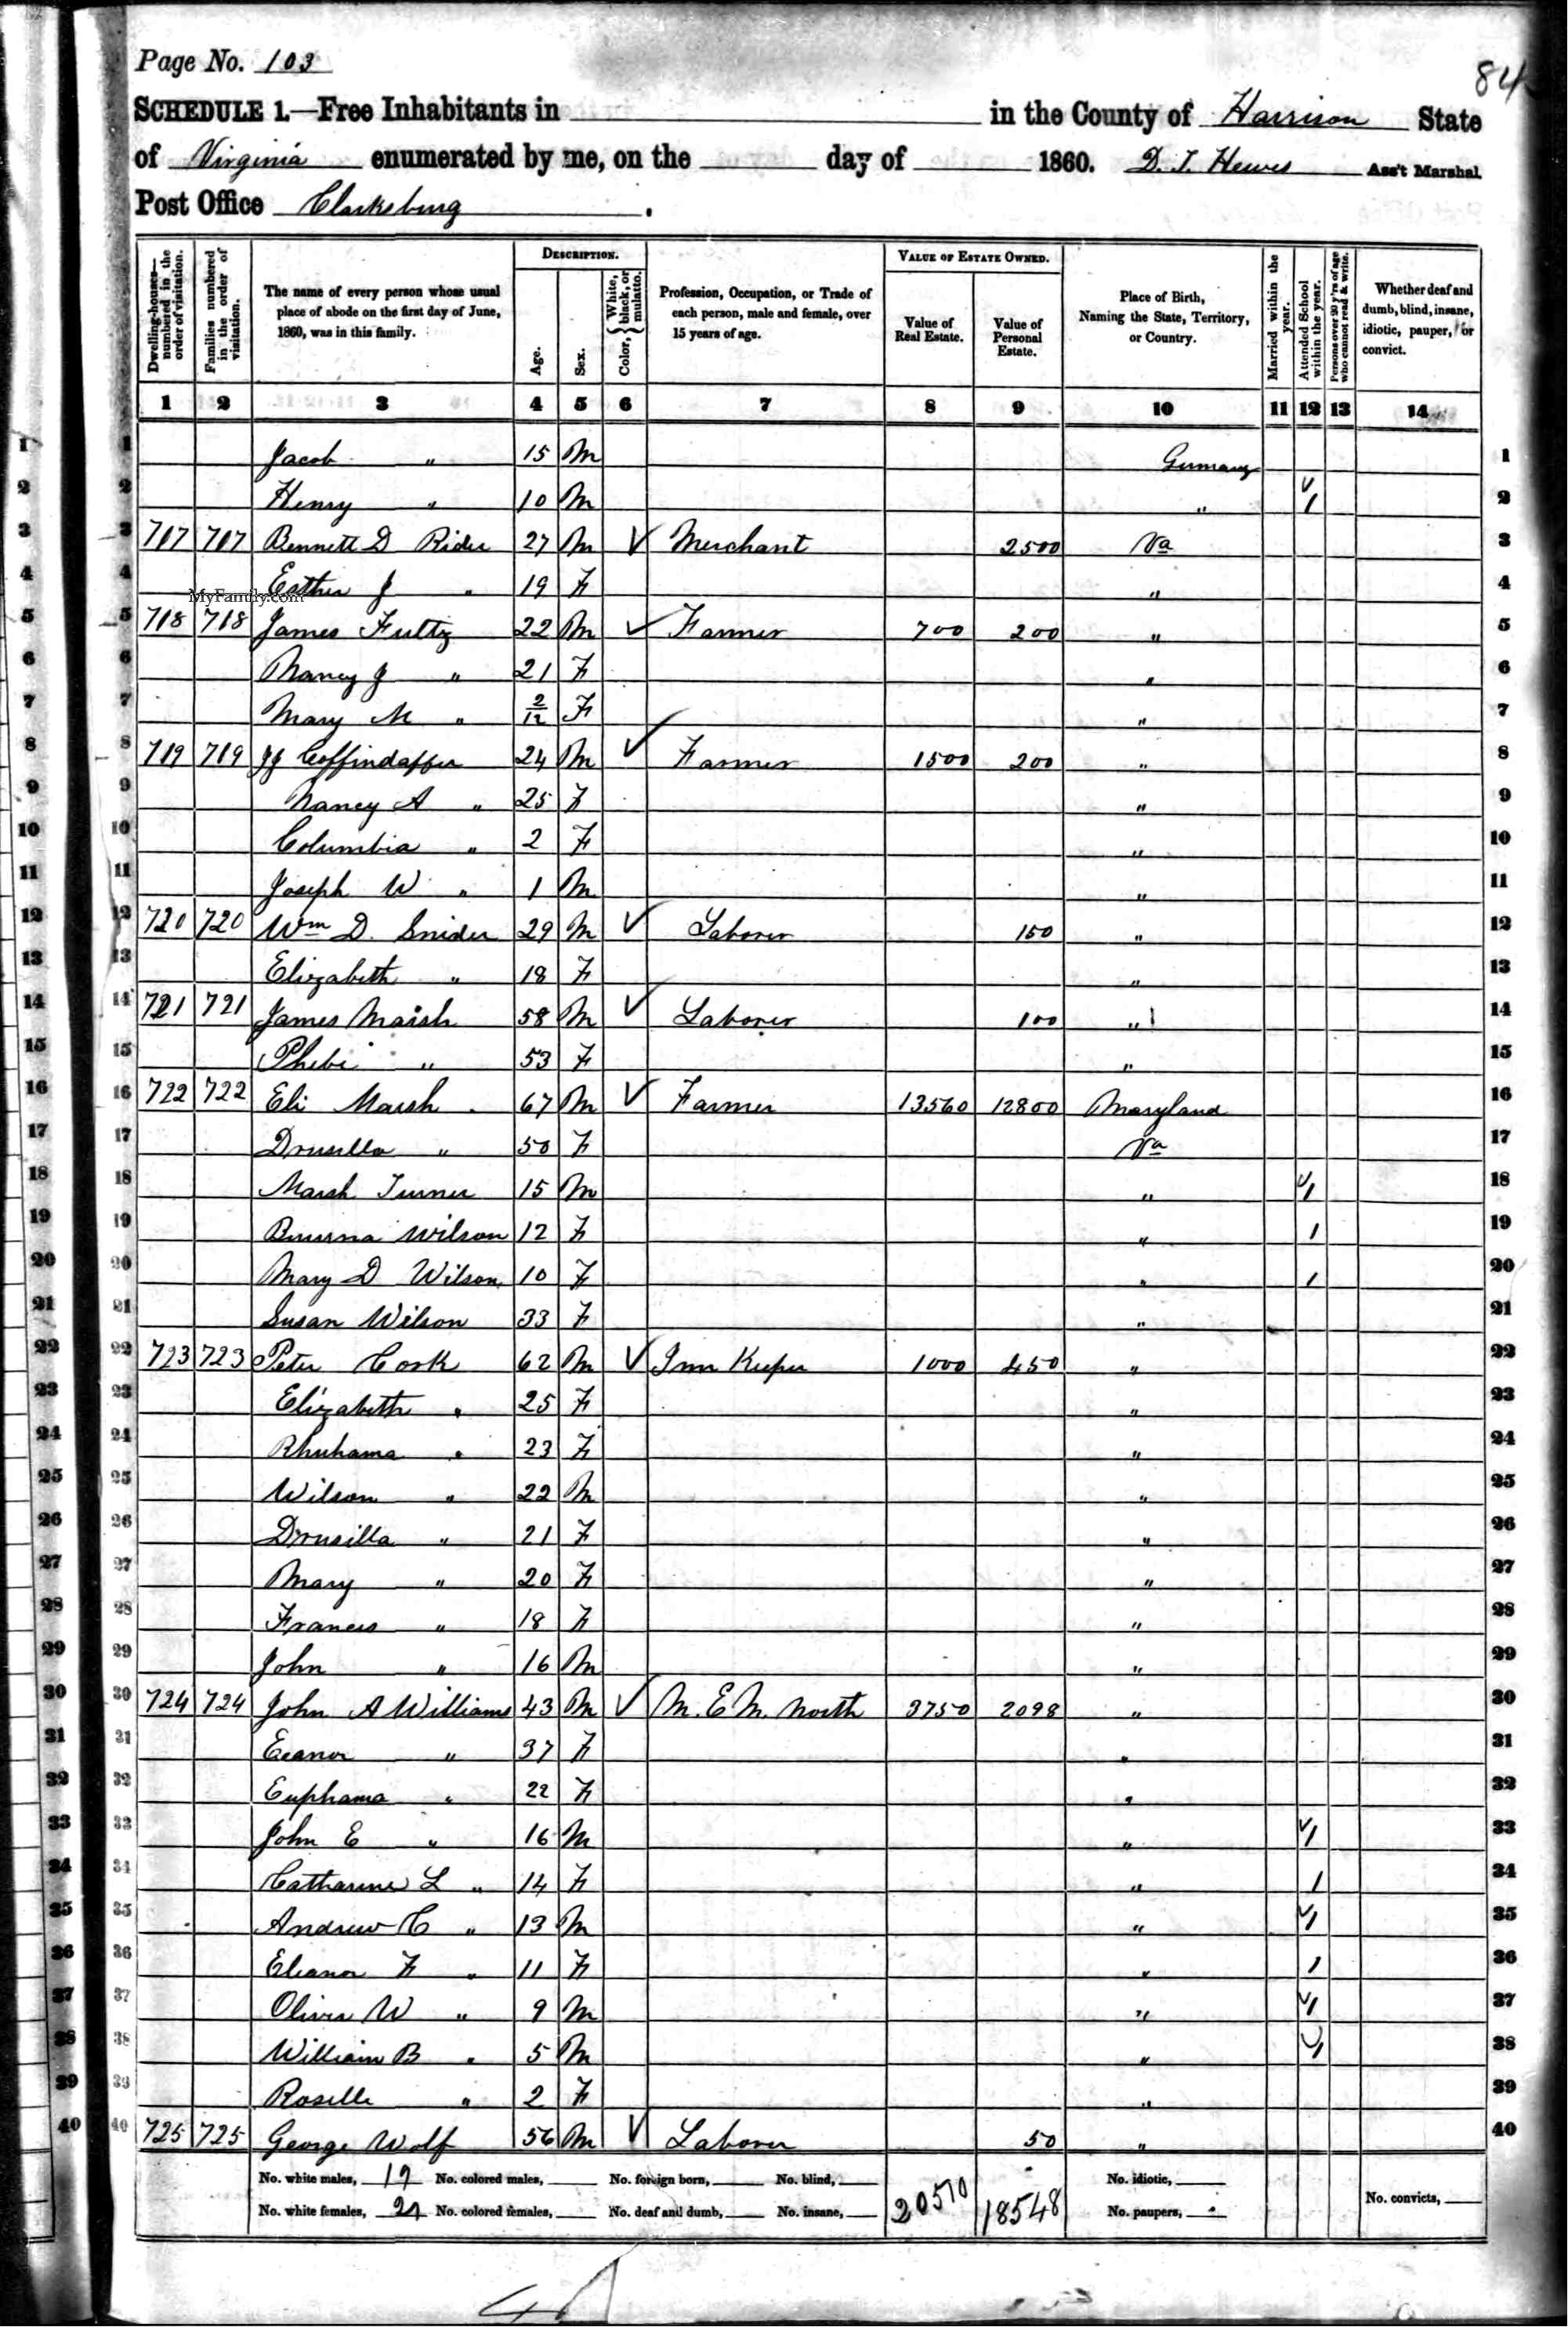 Page No. 103
84
SCHEDULE 1.—Free Inhabitants in in the County of Harrison State
of Virginia enumerated by me, on the day of 1860. D. I. Hewes Ass't Marshal.
Post Office Clarksburg .
Dwelling-houses—numbered in the order of visitation. Families numbered in the order of visitation. The name of every person whose usual place of abode on the first day of June, 1860, was in this family. DESCRIPTION. Age. Sex. Color, { White, black, or mulatto. Profession, Occupation, or Trade of each person, male and female, over 15 years of age. VALUE OF ESTATE OWNED. Value of Real Estate. Value of Personal Estate. Place of Birth, Naming the State, Territory, or Country. Married within the year. Attended School within the year. Persons over 20 y'rs of age who cannot read & write. Whether deaf and dumb, blind, insane, idiotic, pauper, or convict.
1 2 3 4 5 6 7 8 9 10 11 12 13 14
1 Jacob " 15 M Germany 1
2 Henry " 10 M " 1 2
3 717 717 Bennett D Rider 27 M Merchant 2500 Va 3
4 Esther J " 19 F " 4
MyFamily.com
5 718 718 James Fultz 22 M Farmer 700 200 " 5
6 Nancy J " 21 F " 6
7 Mary M " 2/12 F " 7
8 719 719 Coffindaffer 24 M Farmer 1500 200 " 8
9 Nancy A " 25 F " 9
10 Columbia " 2 F " 10
11 Joseph W " 1 M " 11
12 720 720 Wm D. Snider 29 M Laborer 150 " 12
13 Elizabeth " 18 F " 13
14 721 721 James Marsh 58 M Laborer 100 " 14
15 Phebe " 53 F " 15
16 722 722 Eli Marsh 67 M Farmer 13560 12800 Maryland 16
17 Drusilla " 50 F Va 17
18 Marsh Turner 15 M " 1 18
19 Wilson 12 F " 1 19
20 Mary D Wilson 10 F " 1 20
21 Susan Wilson 33 F " 21
22 723 723 Peter Cork 62 M Inn Keeper 1000 450 " 22
23 Elizabeth " 25 F " 23
24 Rhuhama " 23 F " 24
25 Wilson " 22 M " 25
26 Drusilla " 21 F " 26
27 Mary " 20 F " 27
28 Frances " 18 F " 28
29 John " 16 M " 29
30 724 724 John A Williams 43 M M. E. M. North 3750 2098 " 30
31 Eeanor " 37 F " 31
32 Euphama " 22 F " 32
33 John E " 16 M " 1 33
34 Catharine L " 14 F " 1 34
35 Andrew C " 13 M " 1 35
36 Eleanor F " 11 F " 1 36
37 Oliver W " 9 M " 1 37
38 William B " 5 M " 1 38
39 Roselle " 2 F " 39
40 725 725 George Wolf 56 M Laborer 50 " 40
No. white males, 19 No. colored males, No. foreign born, No. blind, 20510 18548 No. idiotic,
No. white females, 21 No. colored females, No. deaf and dumb, No. insane, No. paupers, No. convicts,